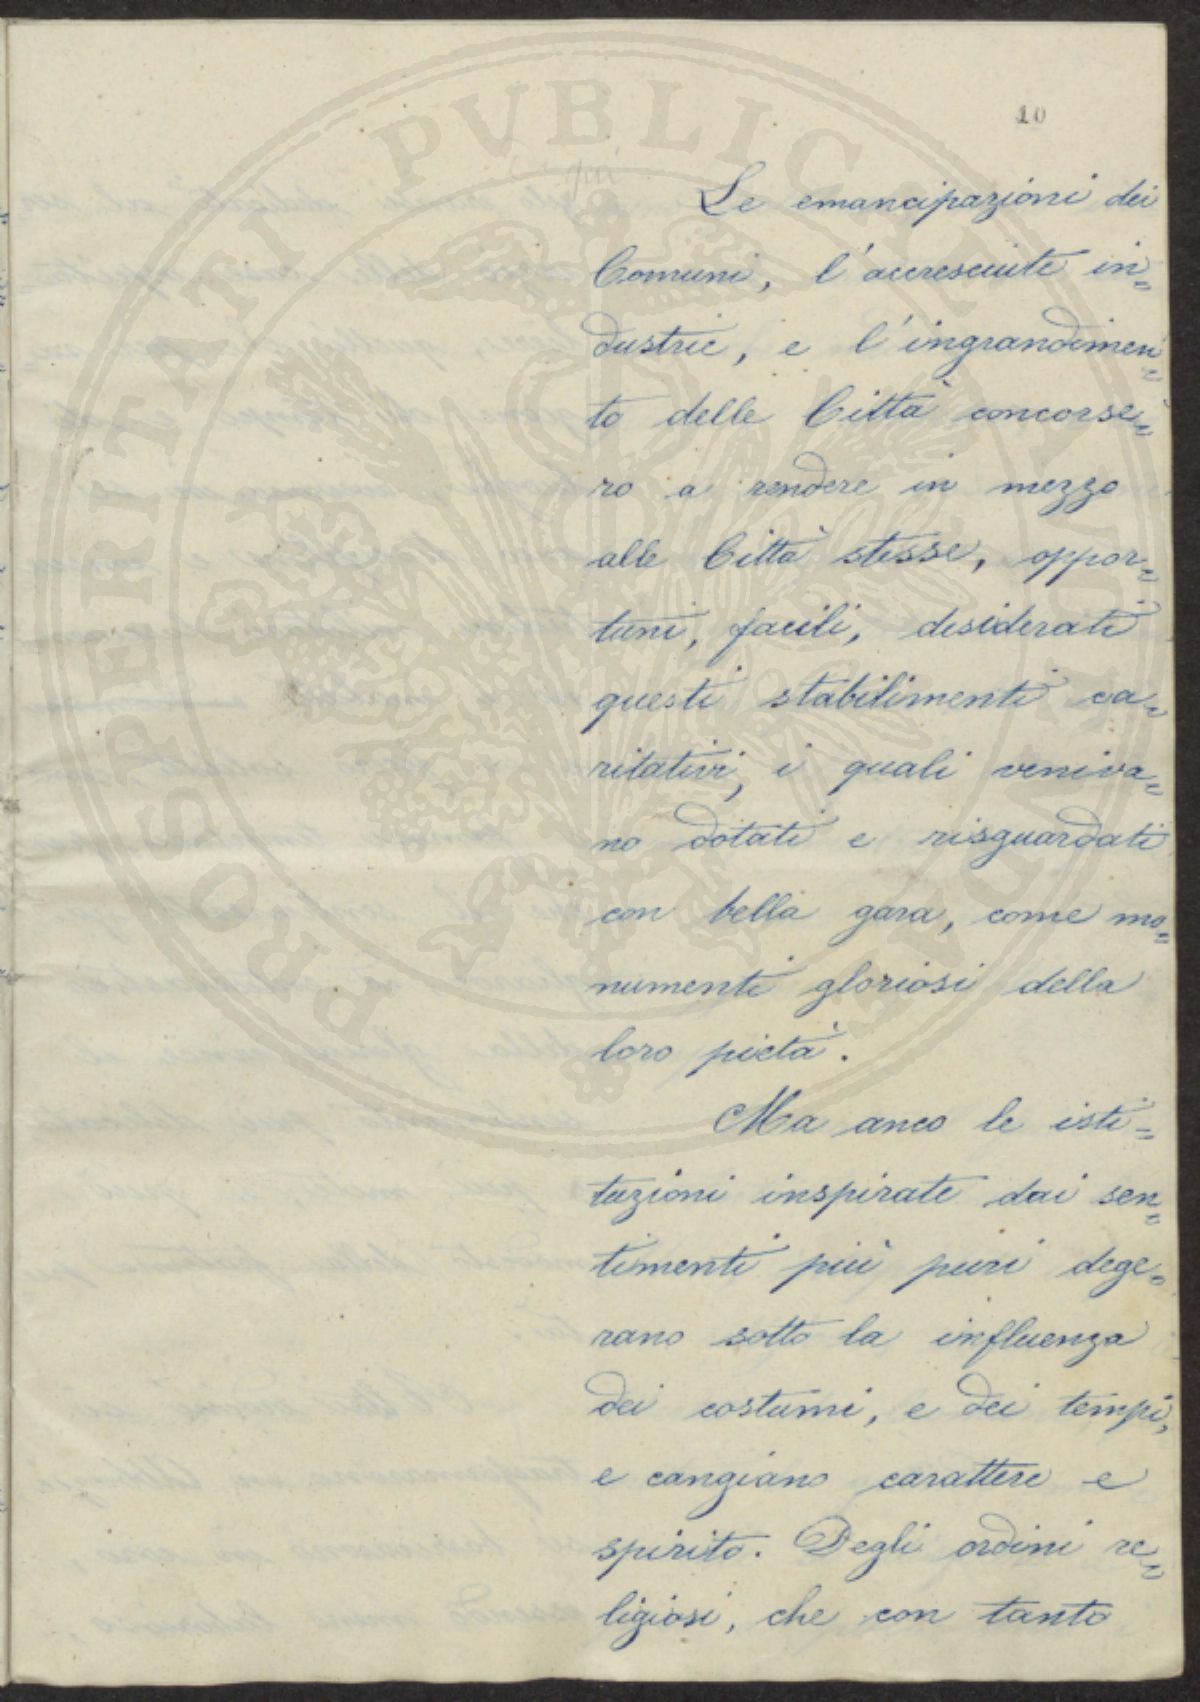 10
Le emancipazioni dei
Comuni, l'accresciute in=
dustrie, e l'ingrandimen=
to delle Città concorse=
ro a rendere in mezzo
alle Città stesse, oppor=
tuni, facili, desiderati
questi stabilimenti ca=
ritativi, i quali veniva=
no dotati e risguardati
con bella gara, come mo=
numenti gloriosi della
loro pietà.
Ma anco le isti=
tuzioni inspirate dai sen=
timenti più puri dege=
rano sotto la influenza
dei costumi, e dei tempi,
e cangiano carattere e
spirito. Degli ordini re=
ligiosi, che con tanto